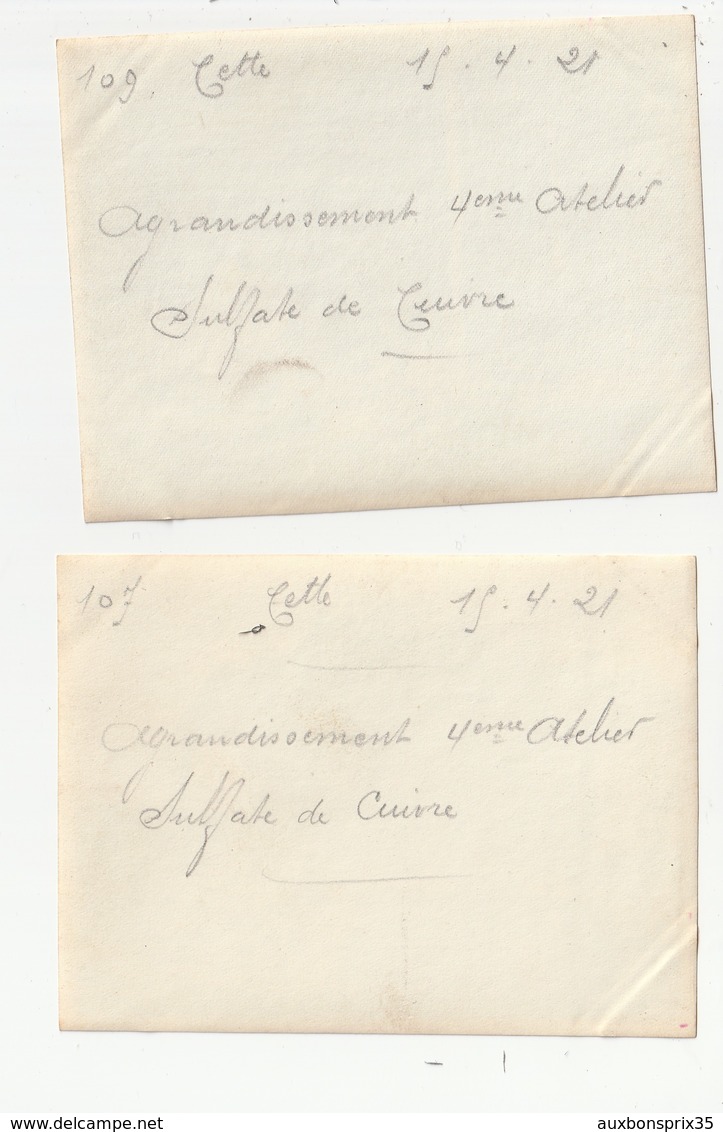 109. Cette 15.4.21
Agrandissement 4eme Atelier
Sulfate de Cuivre
107 Cette 15.4.21
Agrandissement 4eme Atelier
Sulfate de Cuivre
auxbonsprix35